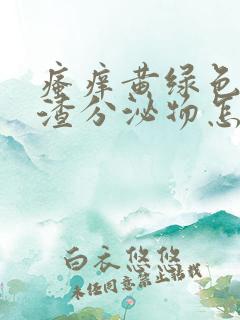 瘙痒黄绿色
渣分泌物怎
白衣悠悠
未经同意禁止转载